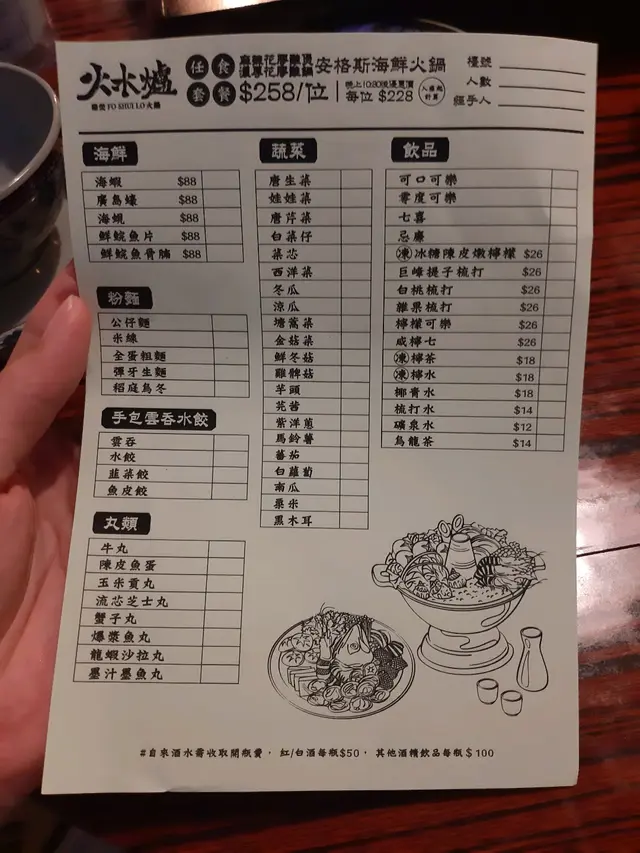 火水爐
FO SHUI LO 火鍋
任食套餐
安格斯海鮮火鍋
$258/位
每位 $228
檯號
人數
經手人
海鮮
海蝦 $88
廣島蠔 $88
海蜆 $88
鮮鯇魚片 $88
鮮鯇魚骨腩 $88
粉麵
公仔麵
米線
全蛋粗麵
彈牙生麵
稻庭烏冬
手包雲吞水餃
雲吞
水餃
韮菜餃
魚皮餃
丸類
牛丸
陳皮魚蛋
玉米貢丸
流芯芝士丸
蟹子丸
爆漿魚丸
龍蝦沙拉丸
墨汁墨魚丸
蔬菜
唐生菜
娃娃菜
唐芹菜
白菜仔
菜芯
西洋菜
冬瓜
涼瓜
塘蒿菜
金菇菜
鮮冬菇
雞髀菇
芋頭
芫茜
紫洋蔥
馬鈴薯
蕃茄
白蘿蔔
南瓜
粟米
黑木耳
飲品
可口可樂
零度可樂
七喜
忌廉
(凍)冰糖陳皮燉檸檬 $26
巨峰提子梳打 $26
白桃梳打 $26
雜果梳打 $26
檸檬可樂 $26
咸檸七 $26
(凍)檸茶 $18
(凍)檸水 $18
椰青水 $18
梳打水 $14
礦泉水 $12
烏龍茶 $14
#自來酒水需收取開瓶費, 紅/白酒每瓶$50, 其他酒精飲品每瓶$100